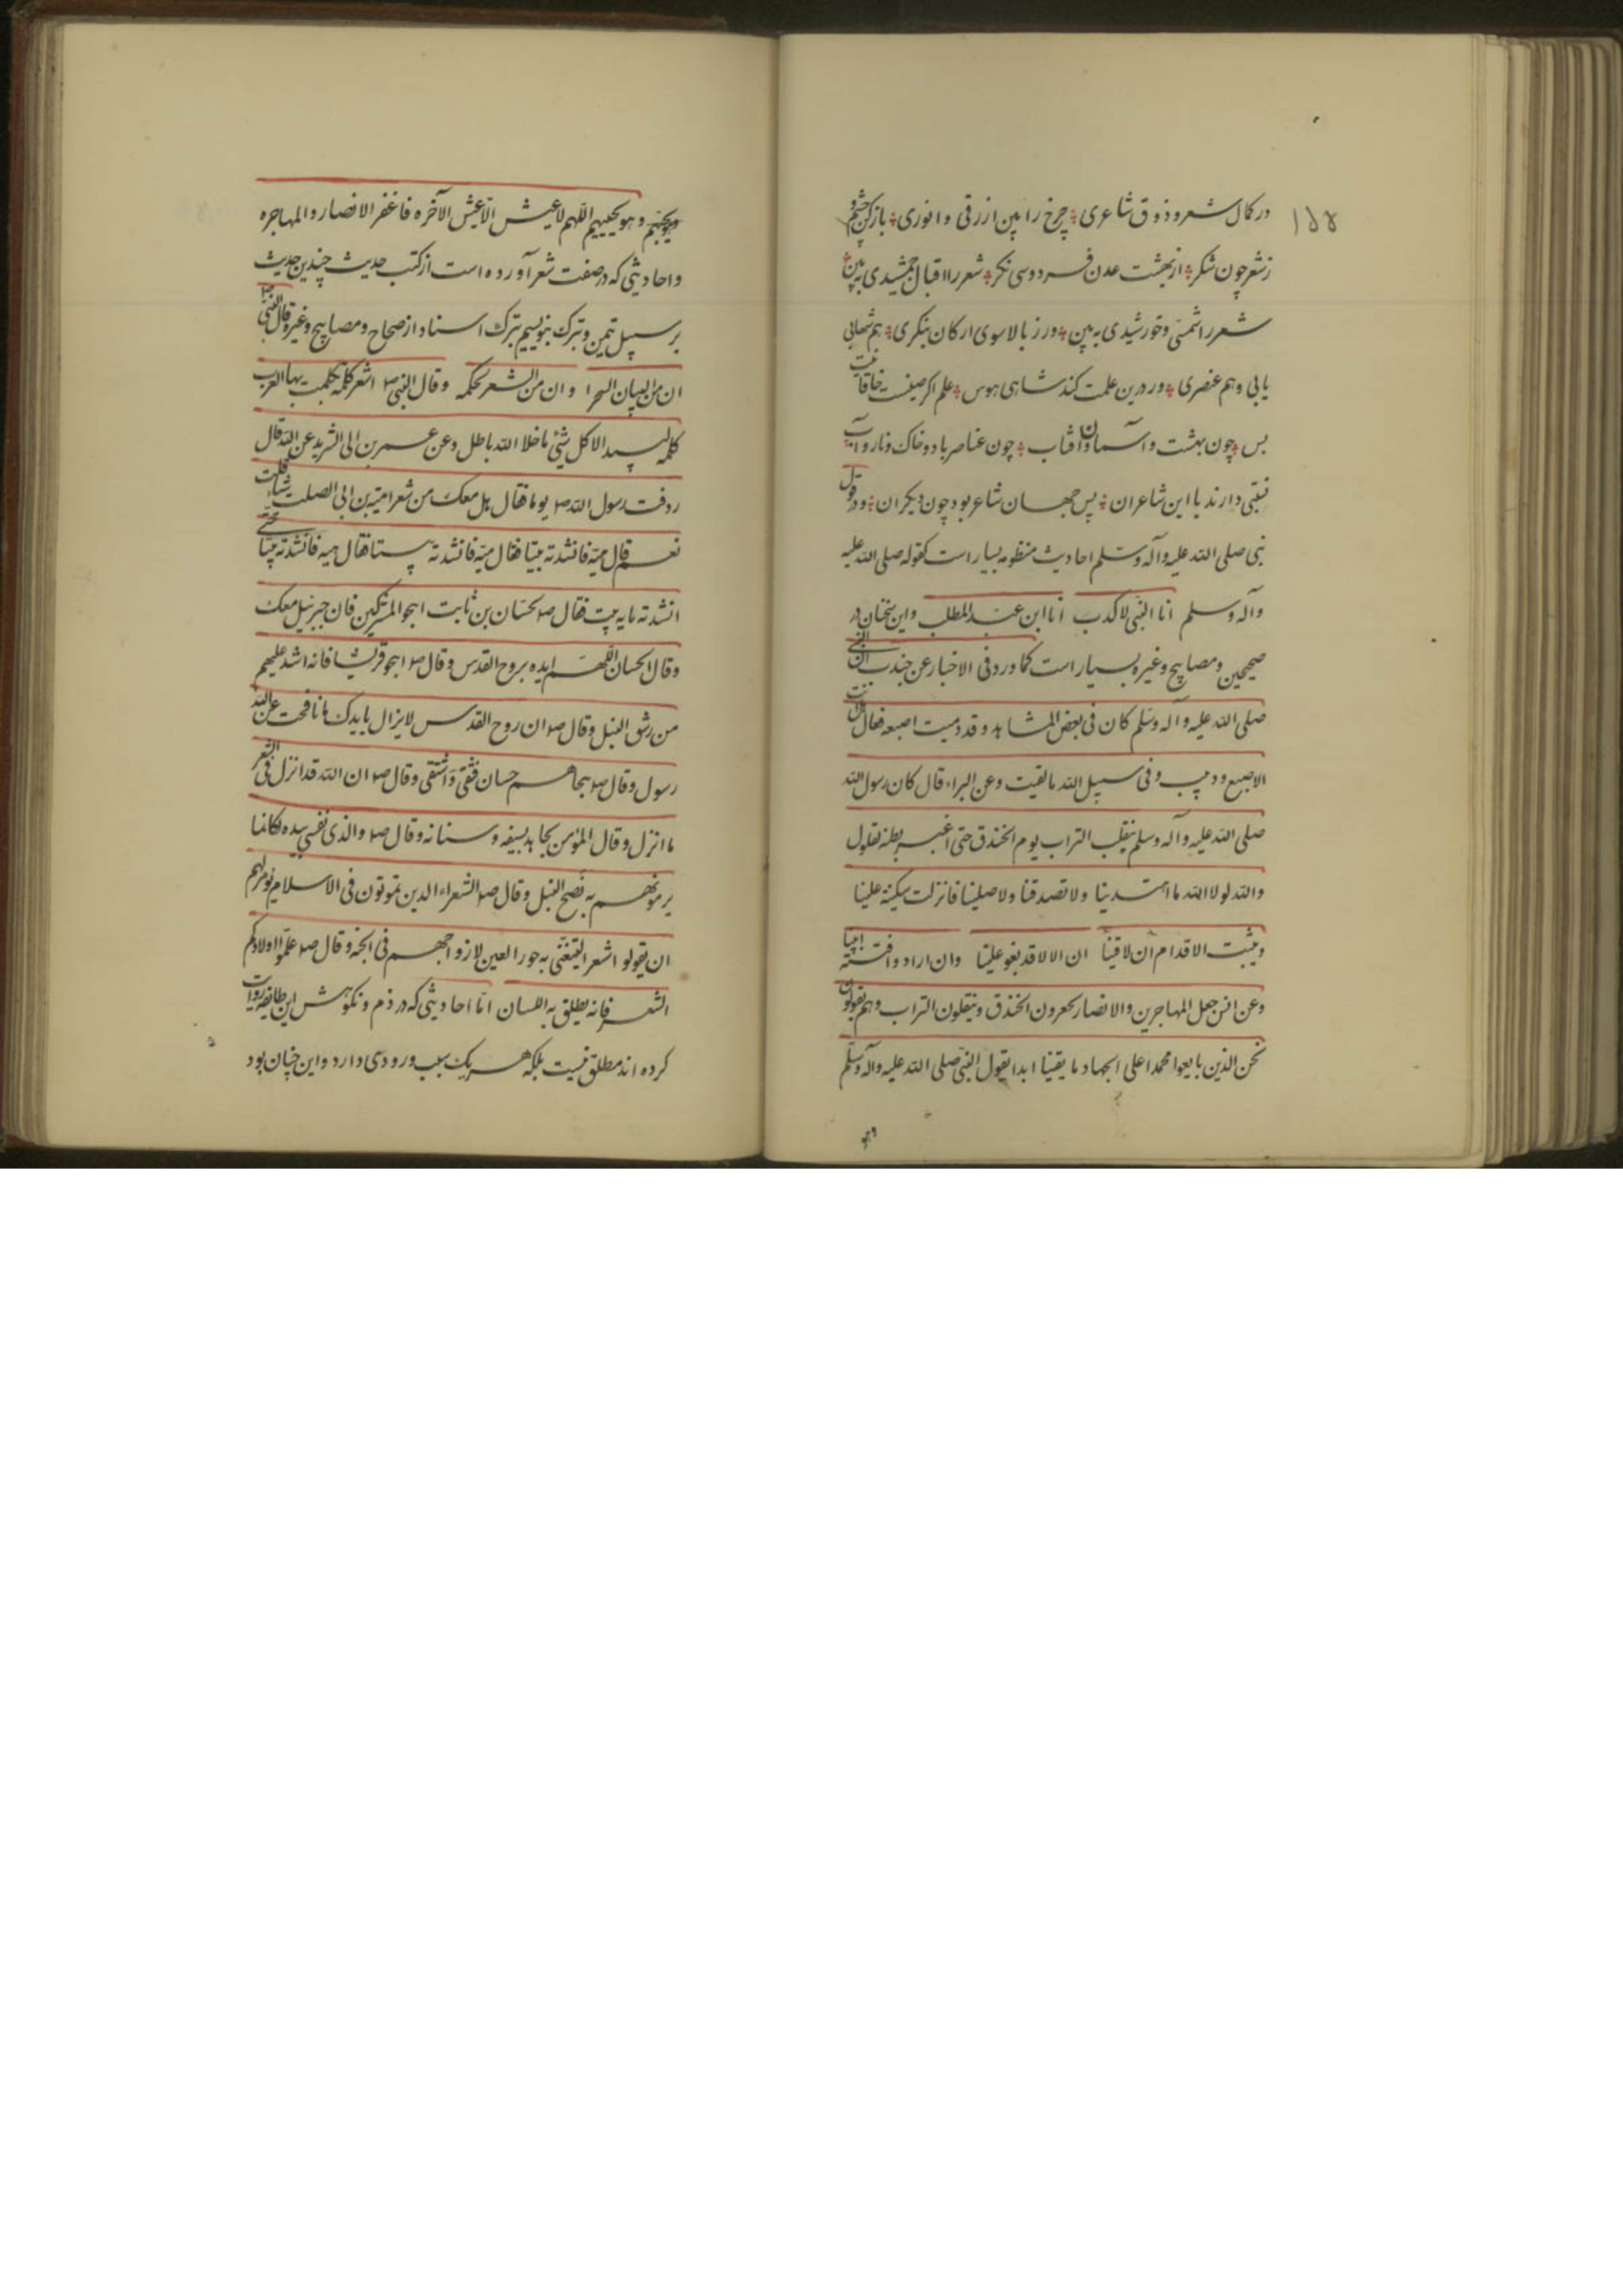 ۱۵۵
در کمال شعر و ذوق شاعری ؞ چرخ را بین ازرقی و انوری ؞ باز کن چشم و
ز شعر چون شکر ؞ از بهشت عدن فردوسی نکر ؞ شعر را اقبال جمشیدی به بین ؞
شعر را شمسی و خورشیدی به بین ؞ ور ز بالا سوی ارکان بنکری ؞ هم شهابی
یابی و هم عنصری ؞ ور درین علمت کند شاهی هوس ؞ علم اکر صیفت خاقانیت
بس ؞ چون بهشت و آسمان و آفتاب ؞ چون عناصر باد و خاک و نار و آب
نسبتی دارند با این شاعران ؞ پس جهان شاعر بود چون دیکران ؞ و در قول
نبی صلی الله علیه وآله وسلم احادیث منظومه بسیار است کقوله صلی الله علیه
وآله وسلم انا النبی لا کذب انا ابن عبد المطلب و این سخنان در
صحیحین و مصابیح و غیره بسیار است کما ورد فی الاخبار عن جندب ان النبی
صلی الله علیه وآله وسلم کان فی بعض المشاهد و قد دمیت اصبعه فقال انت
الاصبع ودمیت و فی سبیل الله ما لقیت وعن البراء قال کان رسول الله
صلی الله علیه وآله وسلم ینقلب التراب یوم الخندق حتی اغبر بطنه یقول
والله لولا الله ما اهتدینا ولا تصدقنا ولا صلینا فانزلت سکینة علینا
ویثبت الاقدام ان لاقینا ان الالا قد بغو علینا وان ارادوا فتنة ابینا
وعن انس جعل المهاجرین والانصار یحفرون الخندق و ینقلون التراب وهم یقولون
نحن الذین بایعوا محمدا علی الجهاد ما بقینا ابدا یقول النبی صلی الله علیه وآله وسلم
وهو یجیبهم اللهم لا عیش الا عیش الآخره فاغفر الانصار والمهاجره
و احادیثی که در صفت شعر آورده است از کتب حدیث چندین حدیث
بر سبیل تیمن و تبرک بنویسیم بترک اسناد از صحاح و مصابیح و غیره قال النبی صه
ان من البیان السحرا و ان من الشعر لحکمه وقال النبی صه اشعر کلمة تکلمت بها العرب
کلمه لبید الا کل شئ ما خلا الله باطل وعن عمر بن ابی الشرید عن ابیه قال
ردفت رسول الله صه یوما فقال هل معک من شعر امیة بن ابی الصلت شیاء قلت
نعم قال هیه فانشدته بیتا فقال هیه فانشدته بیتا فقال هیه فانشدته بیتا حتی
انشدته مایه بیت فقال صه لحسان بن ثابت اهجو المشرکین فان جبرئیل معک
وقال لحسان اللهم ایده بروح القدس وقال صه اهجو قریشا فانه اشد علیهم
من رشق النبل وقال صه ان روح القدس لا یزال یایدک ما نافحت عن الله
رسول وقال صه هجاهم حسان فشفی واشتفی وقال صه ان الله قد انزل فی الشعر
ما انزل وقال المؤمن یجاهد بسیفه و سنانه وقال صه والذی نفسی بیده لکانما
یرمونهم به نضح النبل وقال صه الشعراء الدین یموتون فی الاسلام یومرهم
ان یقولو اشعر التیغنی به حور العین لازواجهم فی الجنه وقال صه علموا اولادکم
الشعر فانه یطلق به اللسان امّا احادیثی که در ذم و نکوهش این طایفه روایت
کرده اند مطلق نیست بلکه هر یک سبب ورودی دارد و این چنان بود